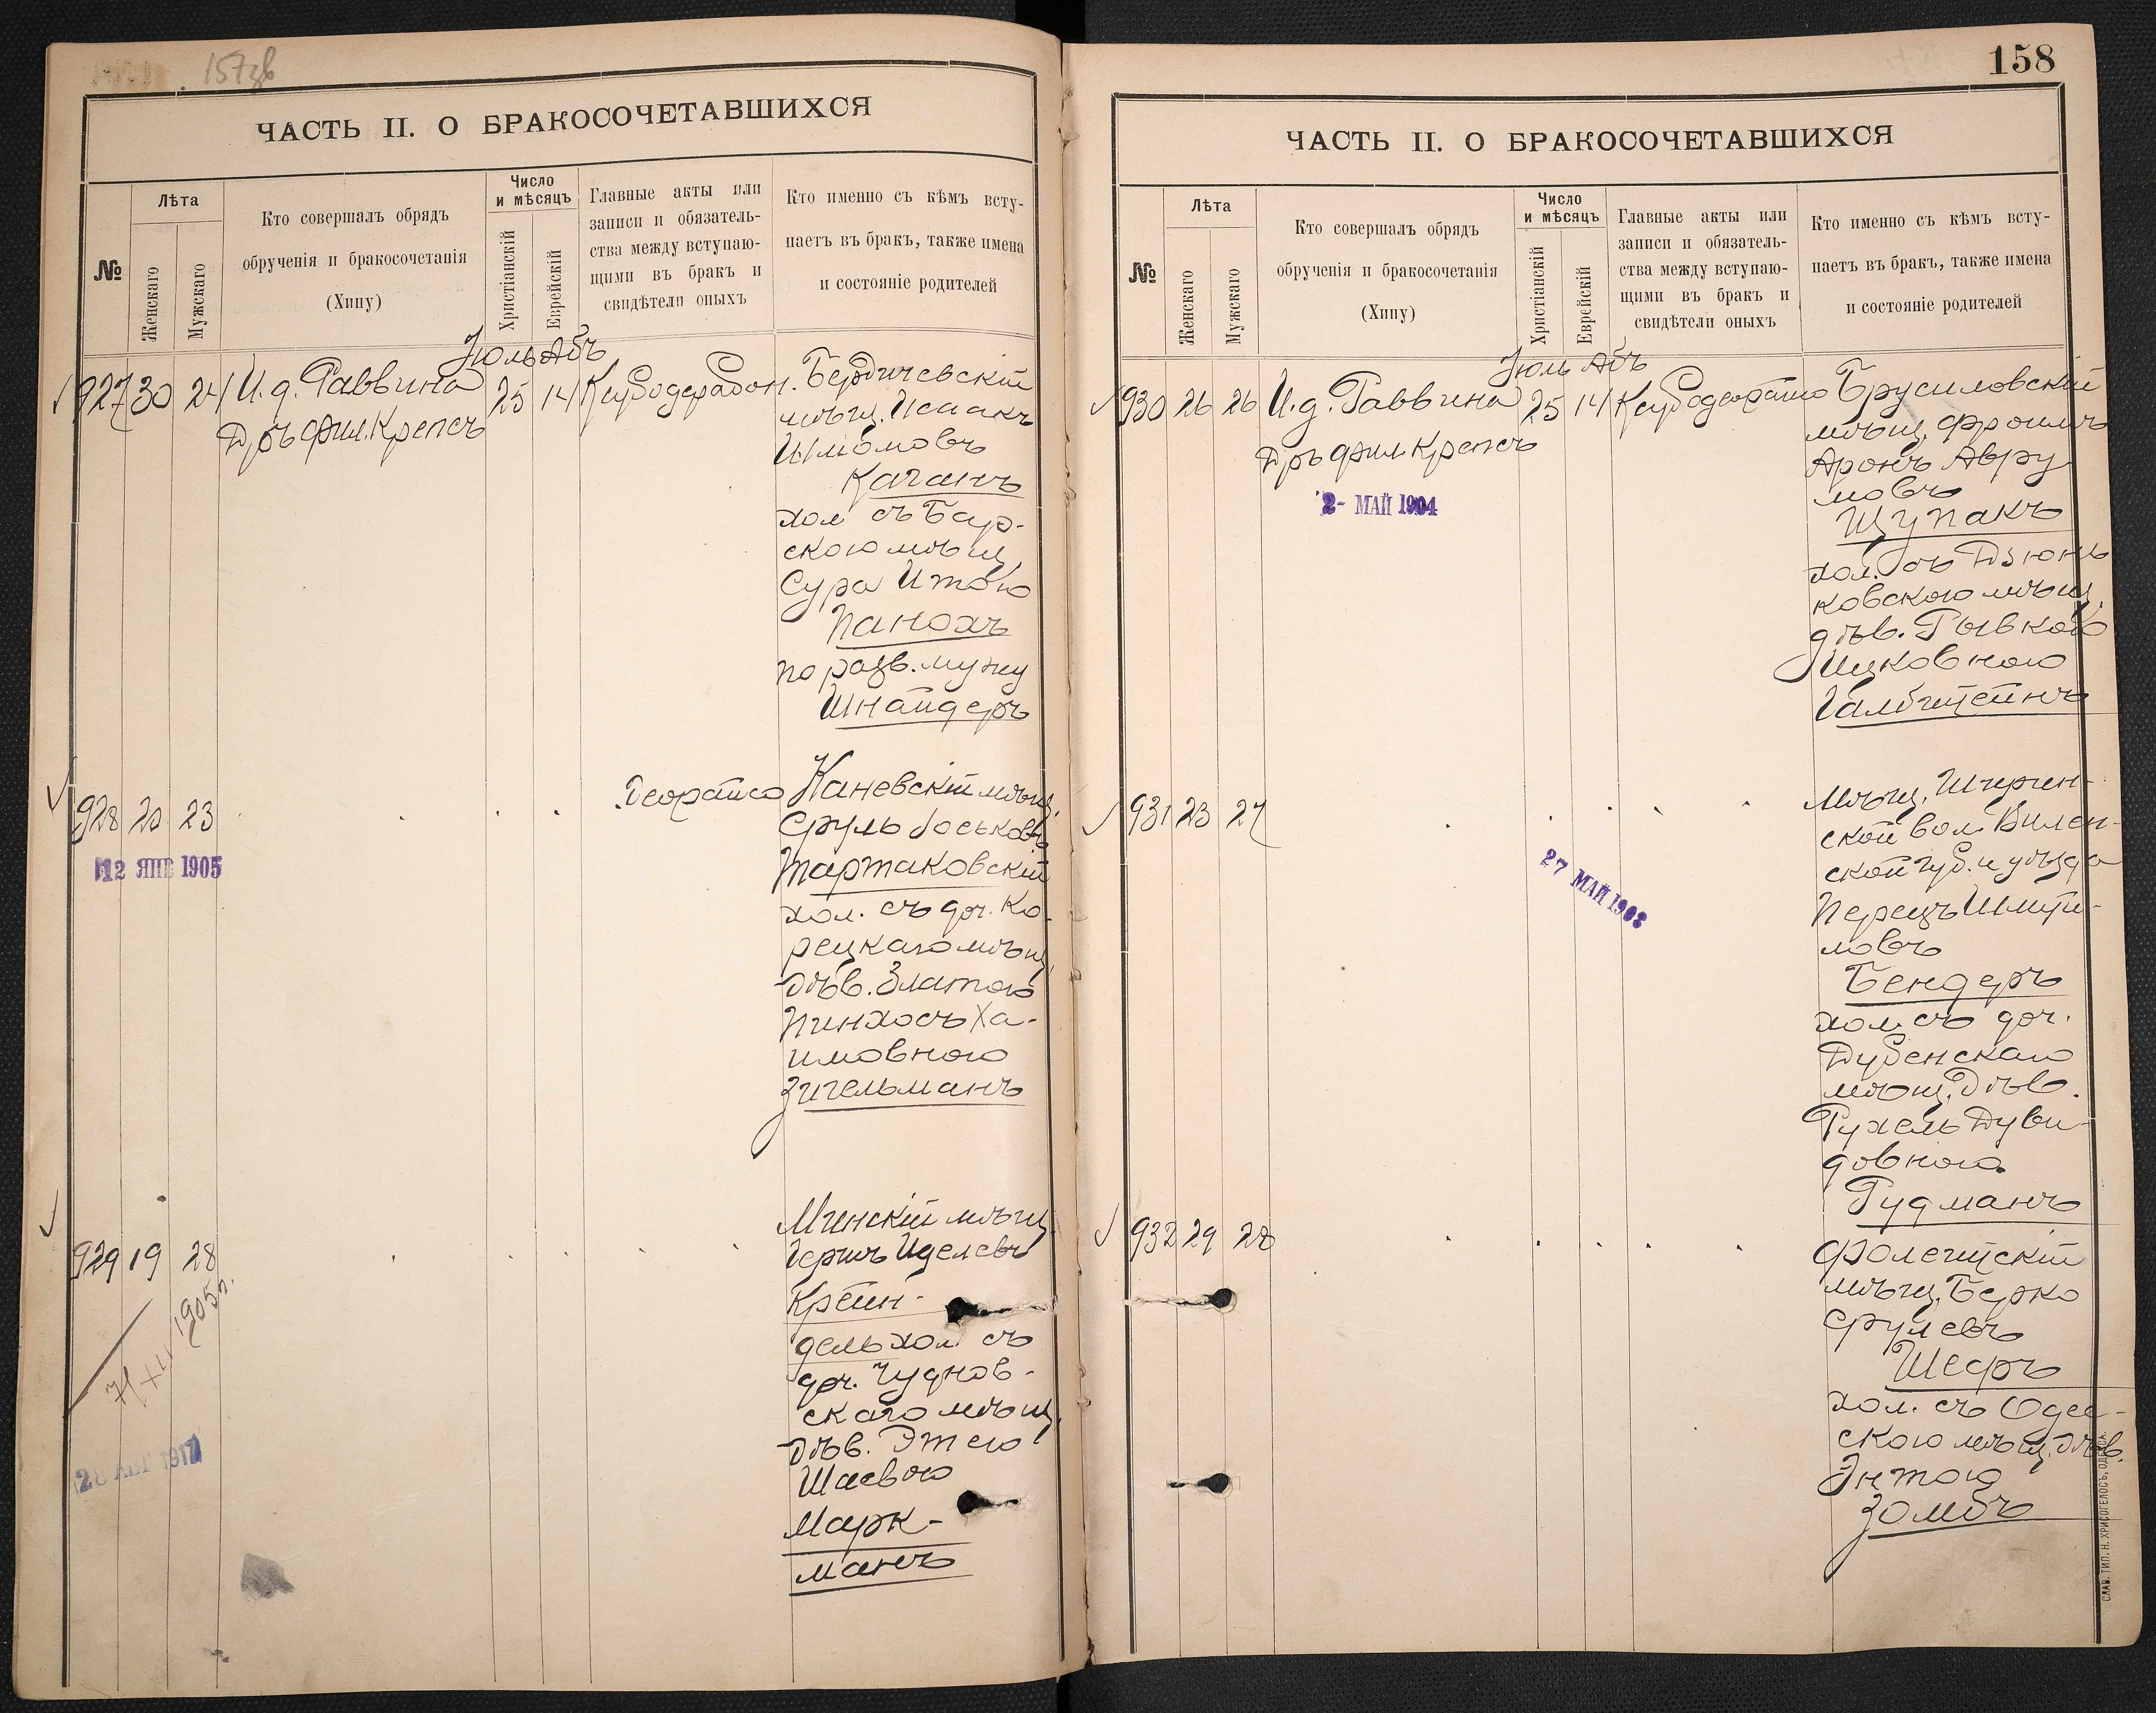 157зв
ЧАСТЬ II. О БРАКОСОЧЕТАВШИХСЯ
№
Лѣта
Женскаго
Мужскаго
Кто совершалъ обрядъ
обрученія и бракосочетанія
(Хипу)
Число
и мѣсяцъ
Христіанскій
Еврейскій
Главные акты или
записи и обязатель-
ства между вступаю-
щими въ бракъ и
свидѣтели оныхъ
Кто именно съ кѣмъ всту-
паетъ въ бракъ, также имена
и состояніе родителей
Іюль Абъ
927 30 24 И. д. Раввина 25 14
Дръ фил. Крепсъ
Бердичевскій
мѣщ. Исаакъ
Шлiомовъ
Каганъ
хол съ Бар-
скою мѣщ.
Сура Итою
Панохъ
по разв. мужу
Шнайдеръ
928 20 23
12 ЯНВ 1905
Каневскій мѣщ.
Сруль Іоськовъ
Тартаковскій
хол. съ доч. Ко-
рецкаго мѣщ.
дѣв. Златою
Пинхосъ Ха-
имовною
Зигельманъ
929 19 28
1905 г.
28 АВГ 1917
Минскій мѣщ.
Гершъ Иделевъ
Крейн-
дель хол. съ
доч. Чуднов-
скаго мѣщ.
дѣв. Этею
Шаевою
Марк-
манъ
158
ЧАСТЬ II. О БРАКОСОЧЕТАВШИХСЯ
№
Лѣта
Женскаго
Мужскаго
Кто совершалъ обрядъ
обрученія и бракосочетанія
(Хипу)
Число
и мѣсяцъ
Христіанскій
Еврейскій
Главные акты или
записи и обязатель-
ства между вступаю-
щими въ бракъ и
свидѣтели оныхъ
Кто именно съ кѣмъ всту-
паетъ въ бракъ, также имена
и состояніе родителей
Іюль Абъ
930 26 26 И. д. Раввина 25 14
Дръ фил. Крепсъ
2- МАЙ 1904
Брусиловскій
мѣщ. Фроимъ
Аронъ Авру
мовъ
Щупакъ
хол. съ Дзюнь
ковскою мѣщ.
дѣв. Рывкою
Ицковною
Галбштейнъ
931 23 27
27 МАЙ 1903
ской вол. Вилен-
ской губ. и уѣзда
Перецъ Шмуй-
ловъ
Бендеръ
хол. съ доч.
Дубенскаго
мѣщ. дѣв.
Рухель Дуви-
довною
Гудманъ
932 29 28
Фолештскій
мѣщ. Берко
Срулевъ
Шеръ
хол. съ Одес-
скою мѣщ. дѣв.
Энтою
Зомбъ
СЛАВ. ТИП. Н. ХРИСОГЕЛОСЪ, ОДЕССА.